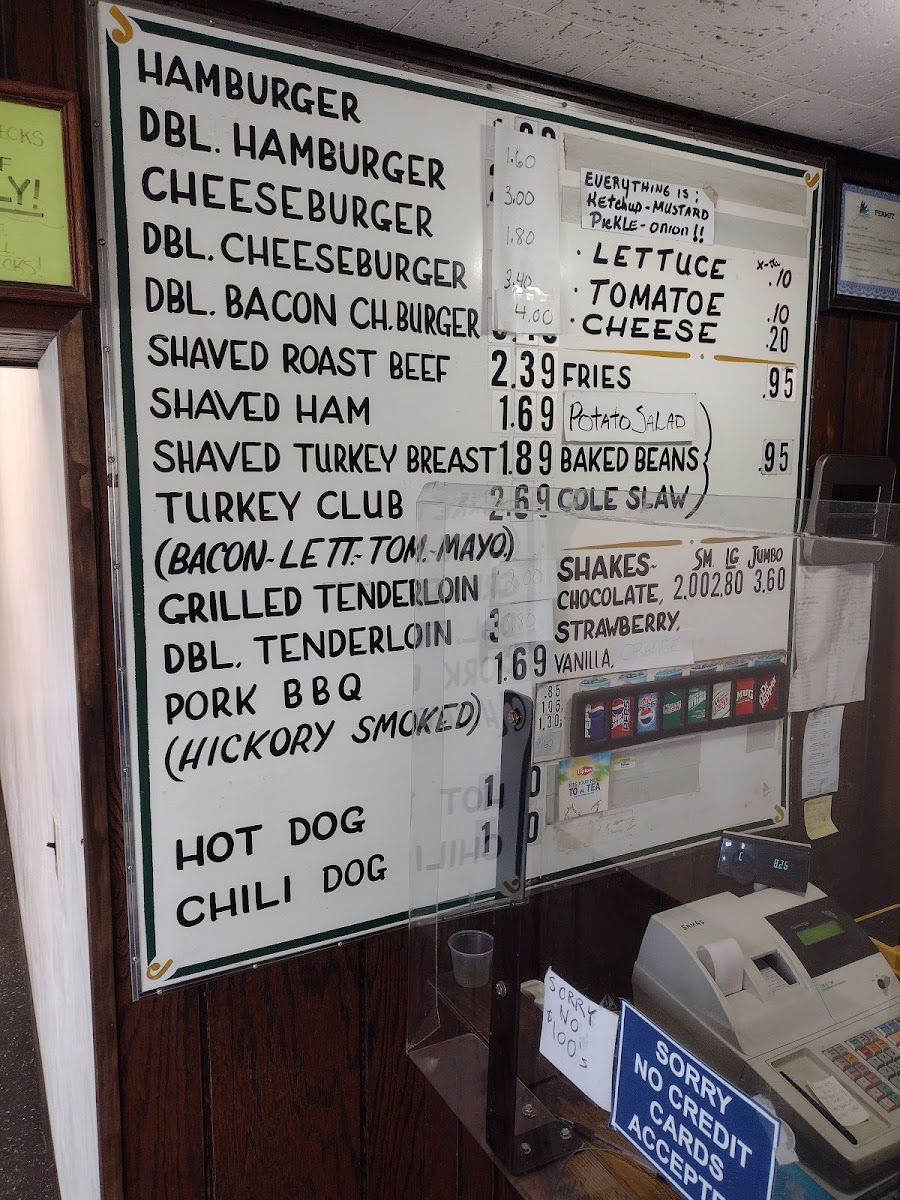 HAMBURGER
DBL. HAMBURGER
CHEESEBURGER
DBL. CHEESEBURGER
DBL. BACON CH.BURGER
SHAVED ROAST BEEF
SHAVED HAM
SHAVED TURKEY BREAST
TURKEY CLUB
(BACON-LETT-TOM.-MAYO)
GRILLED TENDERLOIN
DBL. TENDERLOIN
PORK BBQ
(HICKORY SMOKED)
HOT DOG
CHILI DOG
1.60
3.00
1.80
3.40
4.00
2.39
1.69
1.89
2.69
1.69
EVERYTHING IS:
KETCHUP-MUSTARD
PICKLE-ONION!!
· LETTUCE .10
· TOMATOE .10
· CHEESE .20
FRIES .95
POTATO SALAD
BAKED BEANS .95
COLE SLAW
SM. LG JUMBO
SHAKES-
CHOCOLATE, 2.00 2.80 3.60
STRAWBERRY,
VANILLA,
.85
1.05
1.30
PEPSI
MUG
Lipton
TO A TEA
PERMIT
ECKS
F
LY!
CKS!
8.26
SAM4S
SORRY
NO
$100's
SORRY
NO CREDIT
CARDS
ACCEPTE